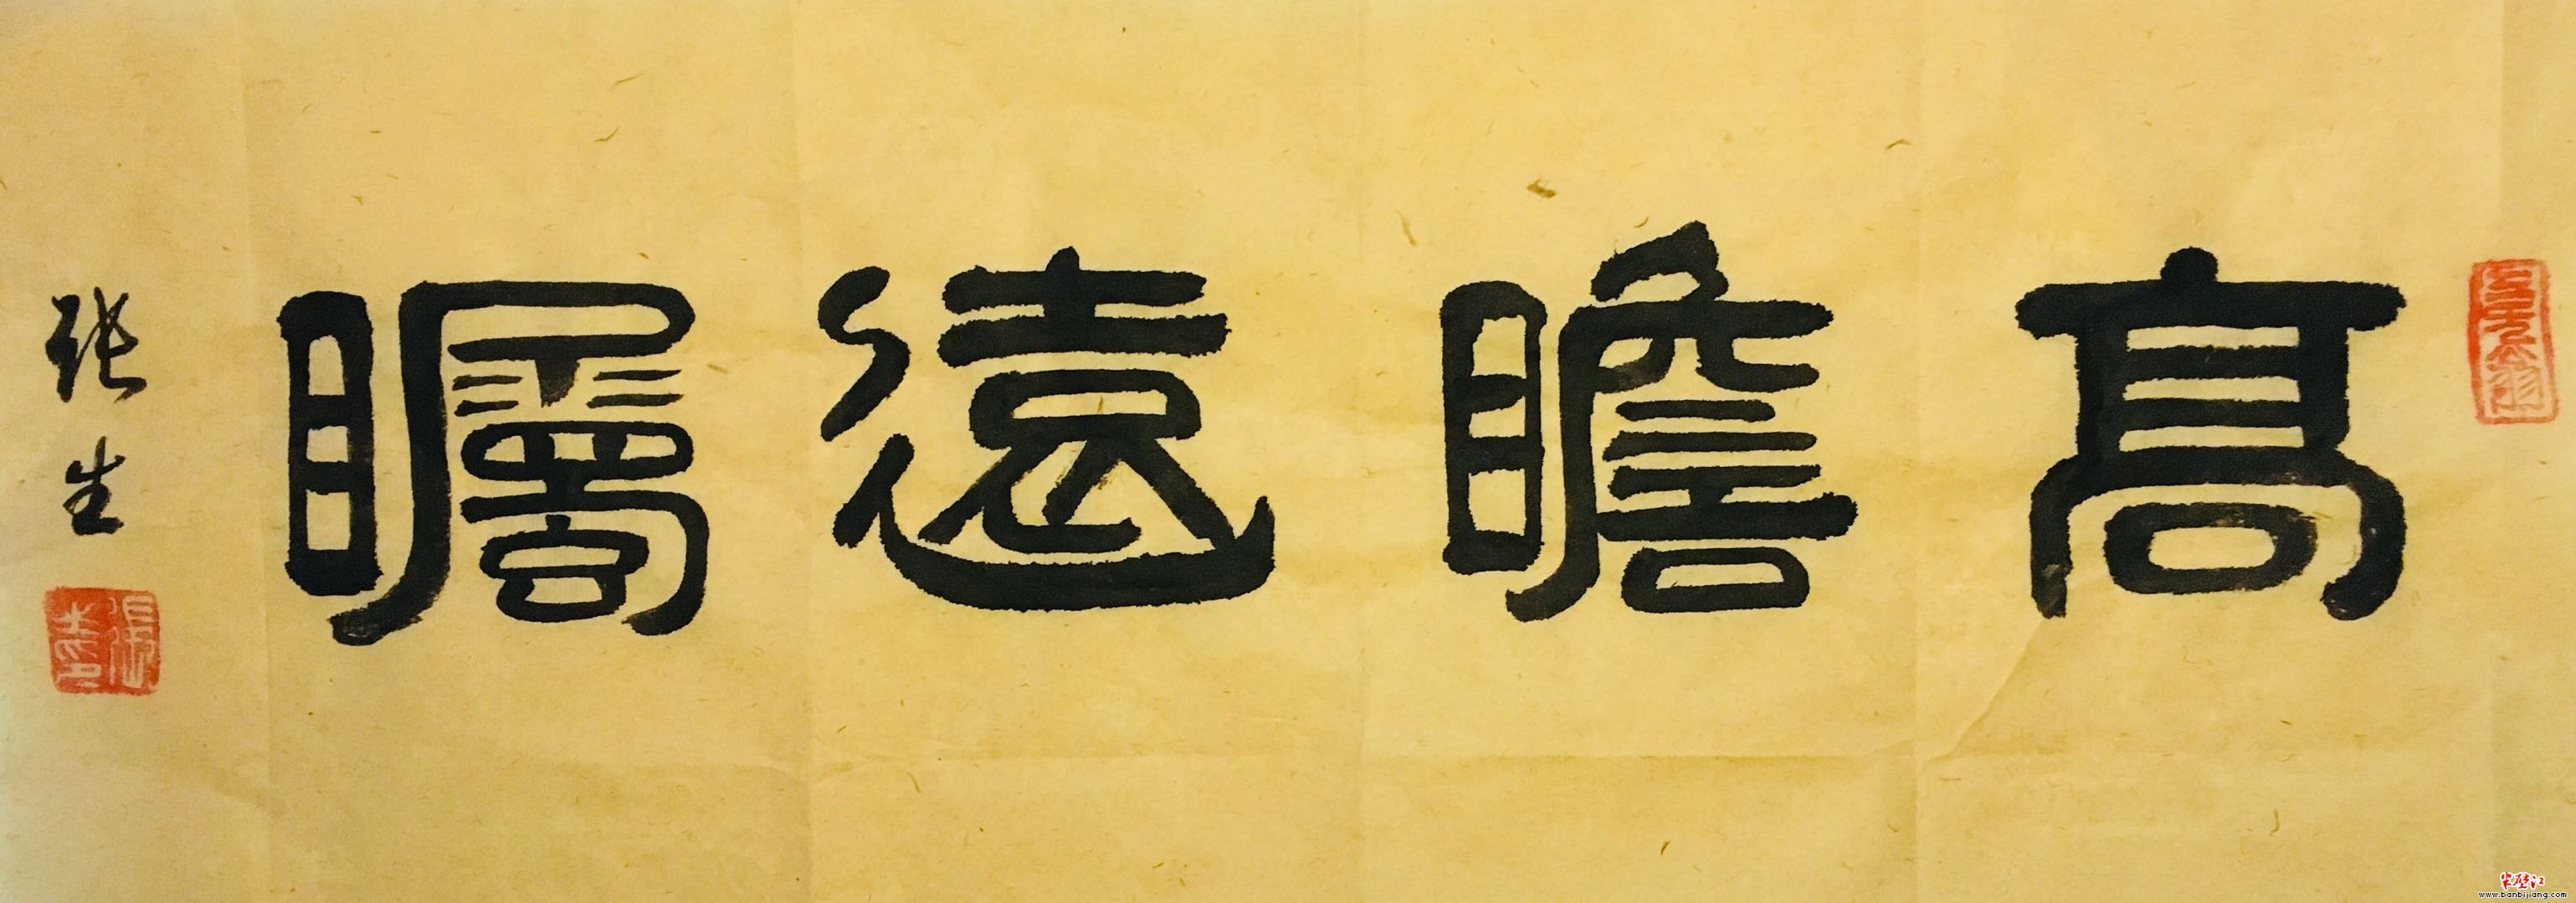 高瞻遠矚
张生
半壁江
www.banbijiang.com